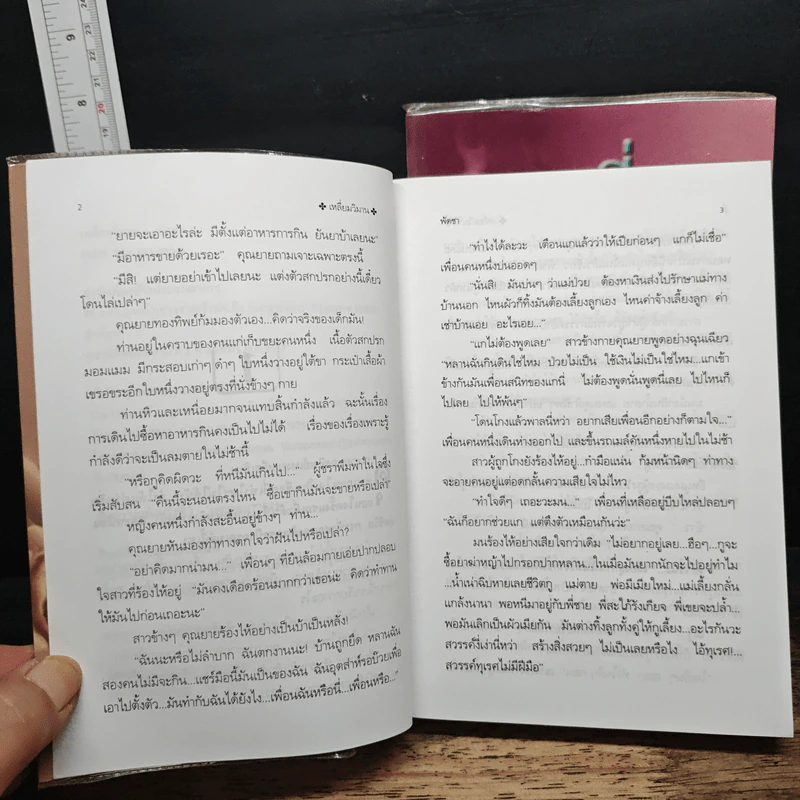 2
✤ เหลี่ยมวิมาน ✤
"ยายจะเอาอะไรล่ะ มีตั้งแต่อาหารการกิน ยันยาบ้าเลยนะ"
"มีอาหารขายด้วยเรอะ" คุณยายถามเจาะเฉพาะตรงนี้
"มีสิ! แต่ยายอย่าเข้าไปเลยนะ แต่งตัวสกปรกอย่างนี้เดี๋ยว
โดนไล่เปล่าๆ"
คุณยายทองทิพย์ก้มมองตัวเอง...คิดว่าจริงของเด็กมัน!
ท่านอยู่ในคราบของคนแก่เก็บขยะคนหนึ่ง เนื้อตัวสกปรก
มอมแมม มีกระสอบเก่าๆ ดำๆ ใบหนึ่งวางอยู่ใต้ขา กระเป๋าเสื้อผ้า
เขรอะขระอีกใบหนึ่งวางอยู่ตรงที่นั่งข้างๆ กาย
ท่านหิวและเหนื่อยมากจนแทบสิ้นกำลังแล้ว ฉะนั้นเรื่อง
การเดินไปซื้อหาอาหารกินคงเป็นไปไม่ได้ เรื่องของเรื่องเพราะรู้
กำลังดีว่าจะเป็นลมตายในไม่ช้านี้
"หรือกูคิดผิดวะ ที่หนีมันเกินไป..." ผู้ชราพึมพำในใจซึ่ง
เริ่มสับสน "คืนนี้จะนอนตรงไหน ซื้อเขากินมันจะขายหรือเปล่า"
หญิงคนหนึ่งกำลังสะอื้นอยู่ข้างๆ ท่าน...
คุณยายหันมองทำท่าทางตกใจว่าฝันไปหรือเปล่า?
"อย่าคิดมากน่ามน..." เพื่อนๆ ที่ยืนล้อมกายเอ่ยปากปลอบ
ใจสาวที่ร้องไห้อยู่ "มันคงเดือดร้อนมากกว่าเธอน่ะ คิดว่าทำทาน
ให้มันไปก่อนเถอะนะ"
สาวข้างๆ คุณยายร้องไห้อย่างเป็นบ้าเป็นหลัง!
"ฉันนะหรือไม่ลำบาก ฉันตกงานนะ! บ้านถูกยึด หลานฉัน
สองคนไม่มีจะกิน...แชร์มือนี้มันเป็นของฉัน ฉันอุตส่าห์รอบ๊วยเพื่อ
เอาไปตั้งตัว...มันทำกับฉันได้ยังไง...เพื่อนฉันหรือนี่...เพื่อนหรือ..."
พัดชา
3
"ทำไงได้ละวะ เตือนแกแล้วว่าให้เปียก่อนๆ แกก็ไม่เชื่อ"
เพื่อนคนหนึ่งบ่นออดๆ
"นั่นสิ! มันบ่นๆ ว่าแม่ป่วย ต้องหาเงินส่งไปรักษาแม่ทาง
บ้านนอก ไหนผัวก็ทิ้งมันต้องเลี้ยงลูกเอง ไหนค่าจ้างเลี้ยงลูก ค่า
เช่าบ้านเอย อะไรเอย..."
"แกไม่ต้องพูดเลย" สาวข้างกายคุณยายพูดอย่างฉุนเฉียว
"หลานฉันกินดินใช่ไหม ป่วยไม่เป็น ใช้เงินไม่เป็นใช่ไหม...แกเข้า
ข้างกันมันเพื่อนสนิทของแกนี่ ไม่ต้องพูดนั่นพูดนี่เลย ไปไหนก็
ไปเลย ไปให้พ้นๆ"
"โดนโกงแล้วพาลนี่หว่า อยากเสียเพื่อนอีกอย่างก็ตามใจ..."
เพื่อนคนหนึ่งเดินห่างออกไป และขึ้นรถเมล์คันหนึ่งหายไปในไม่ช้า
สาวผู้ถูกโกงยังร้องไห้อยู่...กำมือแน่น ก้มหน้านิดๆ ท่าทาง
จะอายคนอยู่แต่อดกลั้นความเสียใจไม่ไหว
"ทำใจดีๆ เถอะวะมน..." เพื่อนที่เหลืออยู่บีบไหล่ปลอบๆ
"ฉันก็อยากช่วยแก แต่ตึงตัวเหมือนกันว่ะ"
มนร้องไห้อย่างเสียใจกว่าเดิม "ไม่อยากอยู่เลย...ฮือๆ...กูจะ
ซื้อยาฆ่าหญ้าไปกรอกปากหลาน...ในเมื่อมันยากนักจะไปอยู่ทำไม
...น้ำเน่าฉิบหายเลยชีวิตกู แม่ตาย พ่อมีเมียใหม่...แม่เลี้ยงกลั่น
แกล้งนานา พอหนีมาอยู่กับพี่ชาย พี่สะใภ้รังเกียจ พี่เขยจะปล้ำ...
พอมันเลิกเป็นผัวเมียกัน มันต่างทิ้งลูกทั้งคู่ให้กูเลี้ยง...อะไรกันวะ
สวรรค์งี่เง่านี่หว่า สร้างสิ่งสวยๆ ไม่เป็นเลยหรือไง ไอ้ทุเรศ!...
สวรรค์ทุเรศไม่มีฝีมือ"